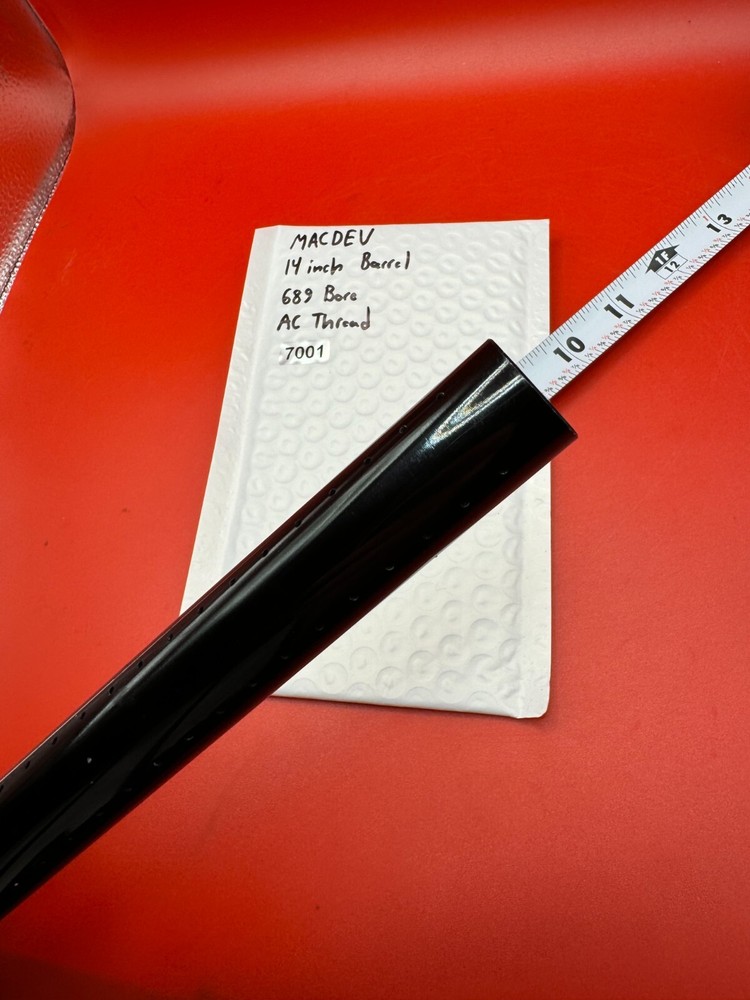 MACDEV
14 inch Barrel
689 Bore
AC Thread
7001
10
11
1F
12
13